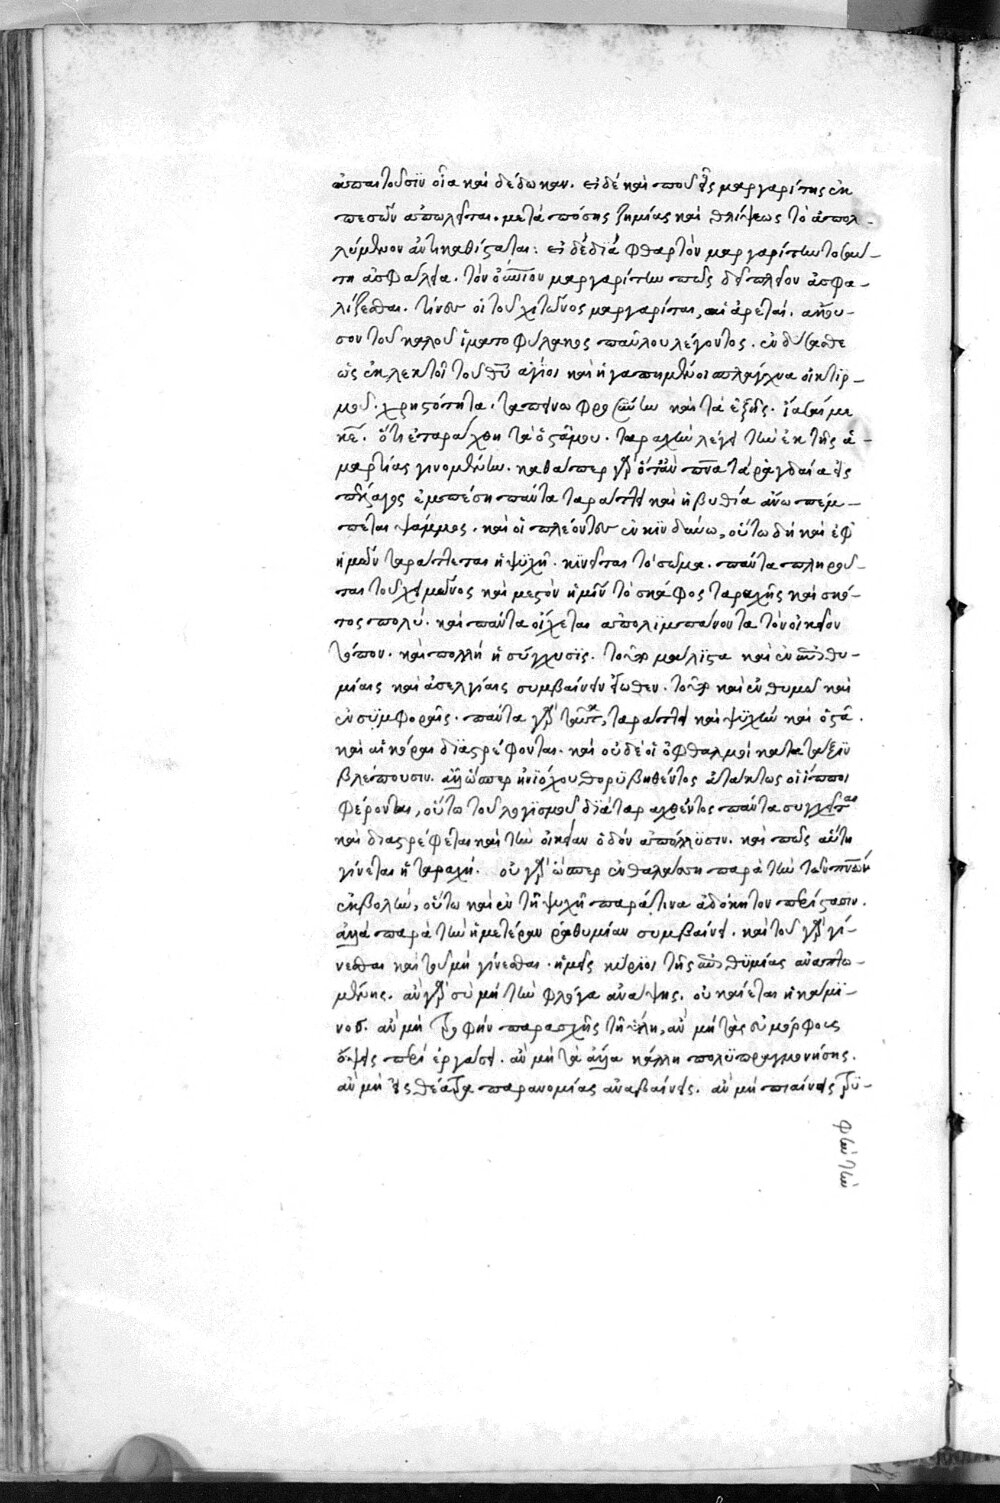 ἀπαιτοῦσιν οἷα καὶ δέδωκαν. εἰ δέ καὶ που εἷς μαργαρίτης ἐκ
πεσὼν ἀπώληται. μετὰ πόσης ζημίας καὶ θλίψεως τὸ ἀπολ-
λύμενον ἀντικαθίσταται: εἰ δὲ διὰ φθαρτὸν μαργαρίτην τοσαύ-
τη ἀσφάλεια. τὸν μαργαρίτην πῶς δεῖ πλέον ἀσφα-
λίζεσθαι. τίνες οἱ τοῦ χιτῶνος μαργαρῖται, αἱ ἀρεταί. ἄκου-
σον τοῦ καλοῦ ἱματοφύλακος παύλου λέγοντος. ἐνδύσασθε
ὡς ἐκλεκτοὶ τοῦ θῦ ἅγιοι καὶ ἠγαπημένοι σπλάγχνα οἰκτιρ-
μοῦ. χρηστότητα. ταπεινοφροσύνην καὶ τὰ ἑξῆς. ἴασαί με
κε. ὅτι ἐταράχθη τὰ ὀστᾶ μου. ταραχὴν λέγει τὴν ἐκ τῆς ἁ-
μαρτίας γινομένην. καθάπερ γὰρ ὅταν πνα τὰ ῥαγδαῖα εἰς
πέλαγος ἐμπέσῃ πάντα ταράττει καὶ ἡ βυθία ἄνω πέμ-
πεται ψάμμος. καὶ οἱ πλέοντες ἐν κινδύνω, οὕτω δὴ καὶ ἐφ
ἡμῶν ταράττεται ἡ ψυχὴ. κινεῖται τὸ σῶμα. πάντα πληροῦ-
ται τοῦ χειμῶνος καὶ μεστὸν ἡμῖν τὸ σκάφος ταραχῆς καὶ σκό-
τος πολύ. καὶ πάντα οἴχεται ἀπολιμπάνοντα τὸν οἰκεῖον
τόπον. καὶ πολλὴ ἡ σύγχυσις. τοῦτο μάλιστα καὶ ἐν ἐπιθυ-
μίαις καὶ ἀσελγίαις συμβαίνειν εἴωθεν. τοῦτο καὶ ἐν θυμῶ καὶ
ἐν συμφοραῖς. πάντα γὰρ ταῦτα, ταράττει καὶ ψυχὴν καὶ ὀστᾶ.
καὶ αἱ κόραι διαστρέφονται. καὶ οὐδὲ οἱ ὀφθαλμοὶ κατὰ τάξιν
βλέπουσιν. ἀλλ' ὥσπερ ἡνιόχου θορυβηθέντος ἀτάκτως οἱ ἵπποι
φέρονται, οὕτω τοῦ λογισμοῦ διαταραχθέντος πάντα συγχεῖται
καὶ διαστρέφεται καὶ τὴν οἰκείαν ὁδόν ἀπόλλυσιν. καὶ πῶς αὕτη
γίνεται ἡ ταραχή. οὐ γὰρ ὥσπερ ἐν θαλάττη παρὰ τὴν τῶν πνάτων
ἐκβολὴν, οὕτω καὶ ἐν τῇ ψυχῇ παρά τινα ἀδόκητον περίστασιν.
ἀλλὰ παρὰ τὴν ἡμετέραν ῥαθυμίαν συμβαίνει. καὶ τοῦ γὰρ γί-
νεσθαι καὶ τοῦ μὴ γίνεσθαι. ἡμεῖς κύριοι τῆς ἐπιθυμίας ἀναπτο-
μένης. ἂν γὰρ σὺ μὴ τὴν φλόγα ἀνάψης. οὐ καίεται ἡ κάμι-
νος. ἂν μὴ τροφὴν παράσχῃς τῇ ὕλῃ, ἂν μὴ τὰς εὐμόρφους
ὄψεις περιεργάσῃ. ἂν μὴ τὰ ἀλλότρια κάλλη πολυπραγμονήσῃς.
ἂν μὴ εἰς θέατρα παρανομίας ἀναβαίνῃς. ἂν μὴ πιαίνῃς τρυ-
φῶν τὴν